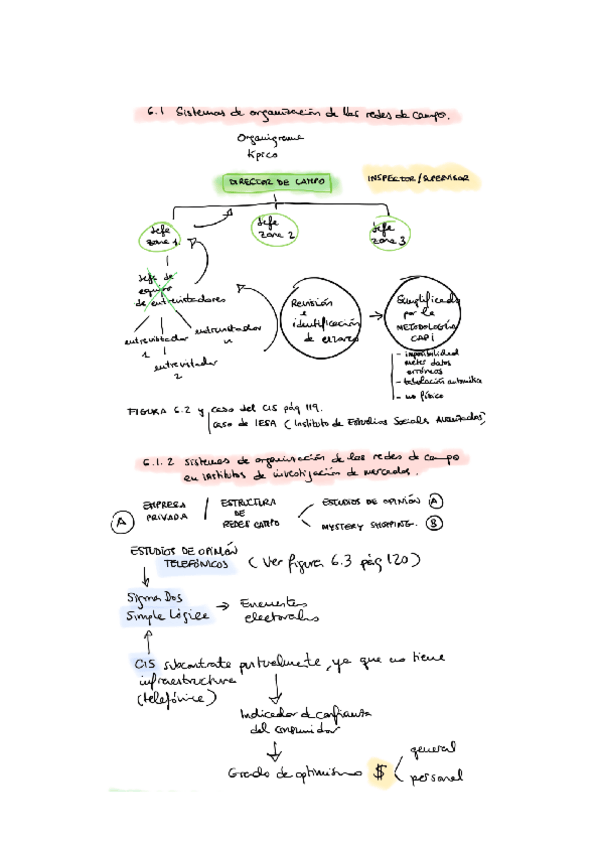 6.1 Sistemas de organización de las redes de campo.
Organigrama
típico
DIRECTOR DE CAMPO
INSPECTOR/SUPERVISOR
Jefe
zona 1
Jefe
zona 2
Jefe
zona 3
Jefe de
equipo
de entrevistadores
entrevistador
1
entrevistador
2
entrevistador
n
Revisión
e
identificación
de errores
Simplificado
por la
METODOLOGÍA
CAPI
- imposibilidad
meter datos
erróneos
- tabulación automática
- no físico
FIGURA 6.2 y caso del CIS pág 119.
caso de IESA (Instituto de Estudios Sociales Avanzados)
6.1.2 Sistemas de organización de las redes de campo
en institutos de investigación de mercados.
A
EMPRESA
PRIVADA
/
ESTRUCTURA
DE
REDES CAMPO
ESTUDIOS DE OPINIÓN A
MYSTERY SHOPPING. B
ESTUDIOS DE OPINIÓN
TELEFÓNICOS (Ver figura 6.3 pág 120)
Sigma Dos
Simple Lógica
Encuestas
electorales
CIS subcontrata puntualmente, ya que no tiene
infraestructura
(telefónica)
Indicador de confianza
del consumidor
Grado de optimismo $
general
personal